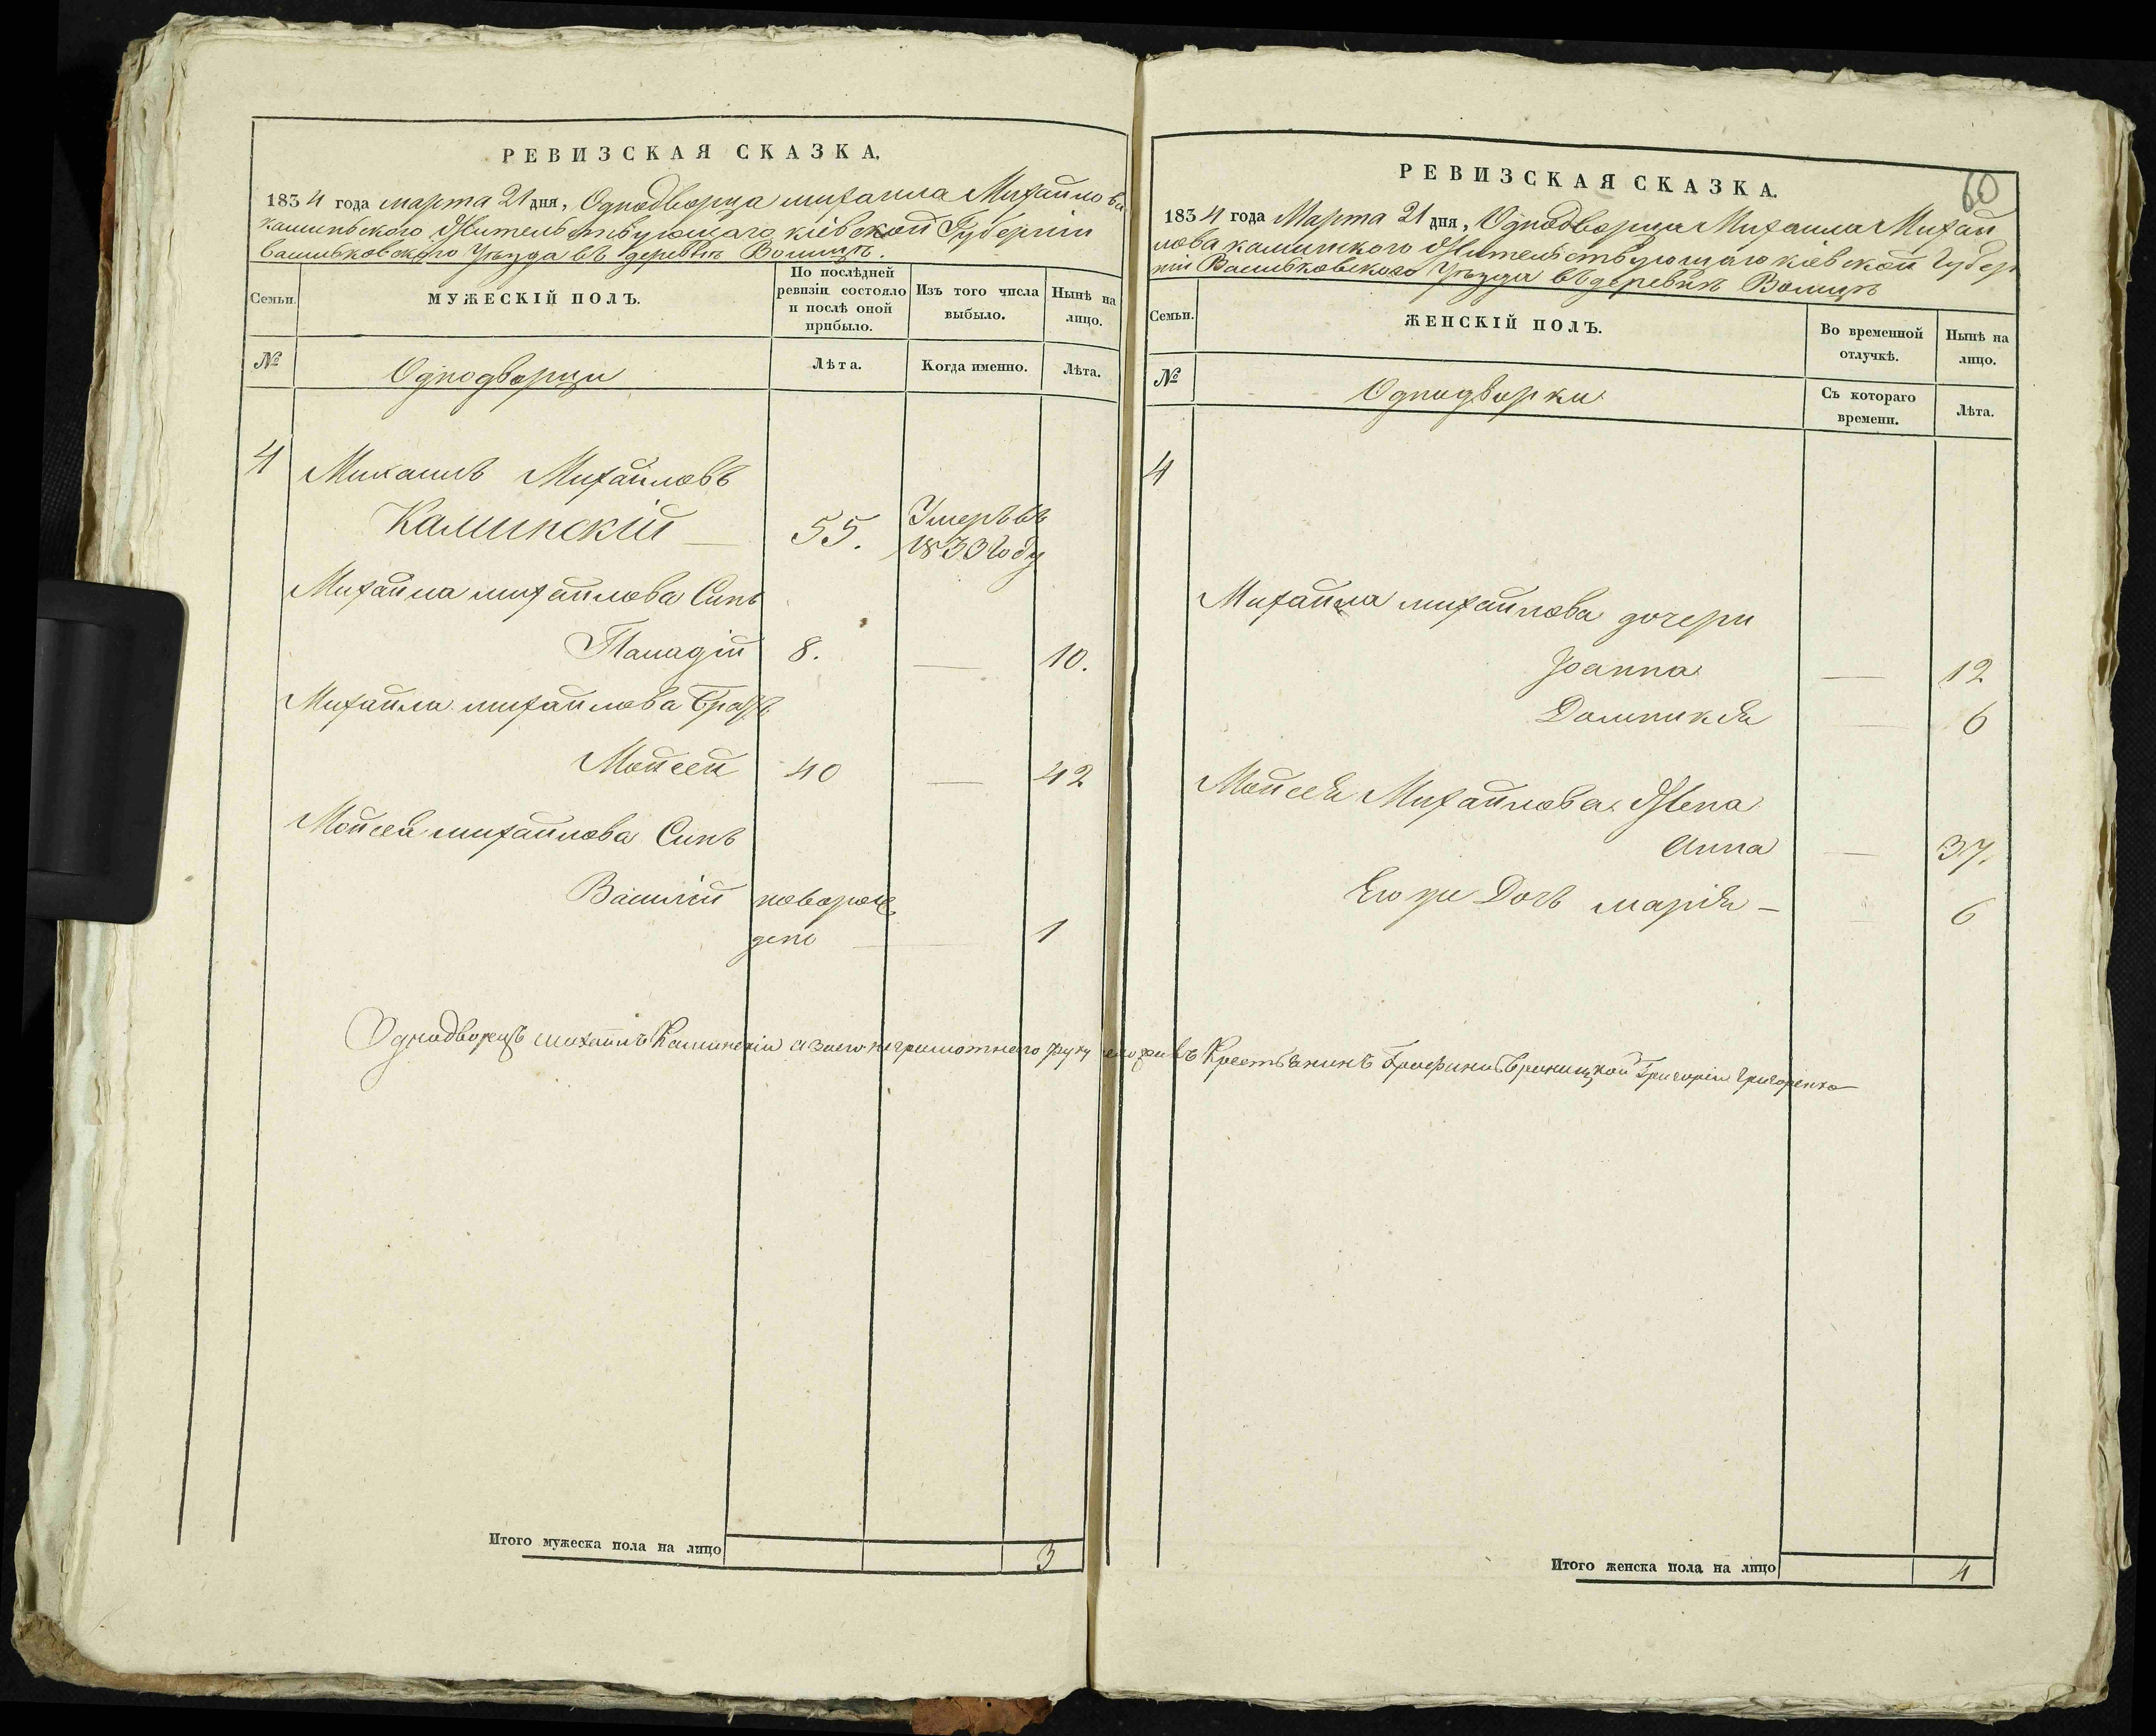 РЕВИЗСКАЯ СКАЗКА.
1834 года марта 21 дня, Однодворца михаила Михайлова
каминского Жительствующаго кіевской Губерніи
васильковского уезда въ деревнѣ Волицѣ.
Семьи.
МУЖЕСКІЙ ПОЛЪ.
По послѣдней ревизіи состояло и послѣ оной прибыло.
Изъ того числа выбыло.
Нынѣ на лицо.
№
Однодворци
Лѣта.
Когда именно.
Лѣта.
4 Михаилъ Михайловъ
Каминскій 55. Умеръ въ
1833 году
Михайла михайлова Синъ
8. 10.
Михайла михайлова Братъ
Мойсей 40 42
Мойсея михайлова Синъ
Василій новорож
дено 1
Однодворецъ михаилъ Каминскій а заего неграмотнего руку приложивъ Крестьянинъ Григорій Григоренко
Итого мужеска пола на лицо 3
60
РЕВИЗСКАЯ СКАЗКА.
1834 года Марта 21 дня, Однодворца Михаила Михай
лова каминского Жительствующаго кіевской Губер
ніи Васильковского уезда въ деревнѣ Волицѣ
Семьи.
ЖЕНСКІЙ ПОЛЪ.
Во временной отлучкѣ.
Нынѣ на лицо.
№
Однодворки
Съ котораго времени.
Лѣта.
4
Михайла михайлова дочери
Іоанна 12
Доминикя 6
Мойсея Михайлова Жена
Анна 37.
Его же Дочь марія 6
Итого женска пола на лицо 4